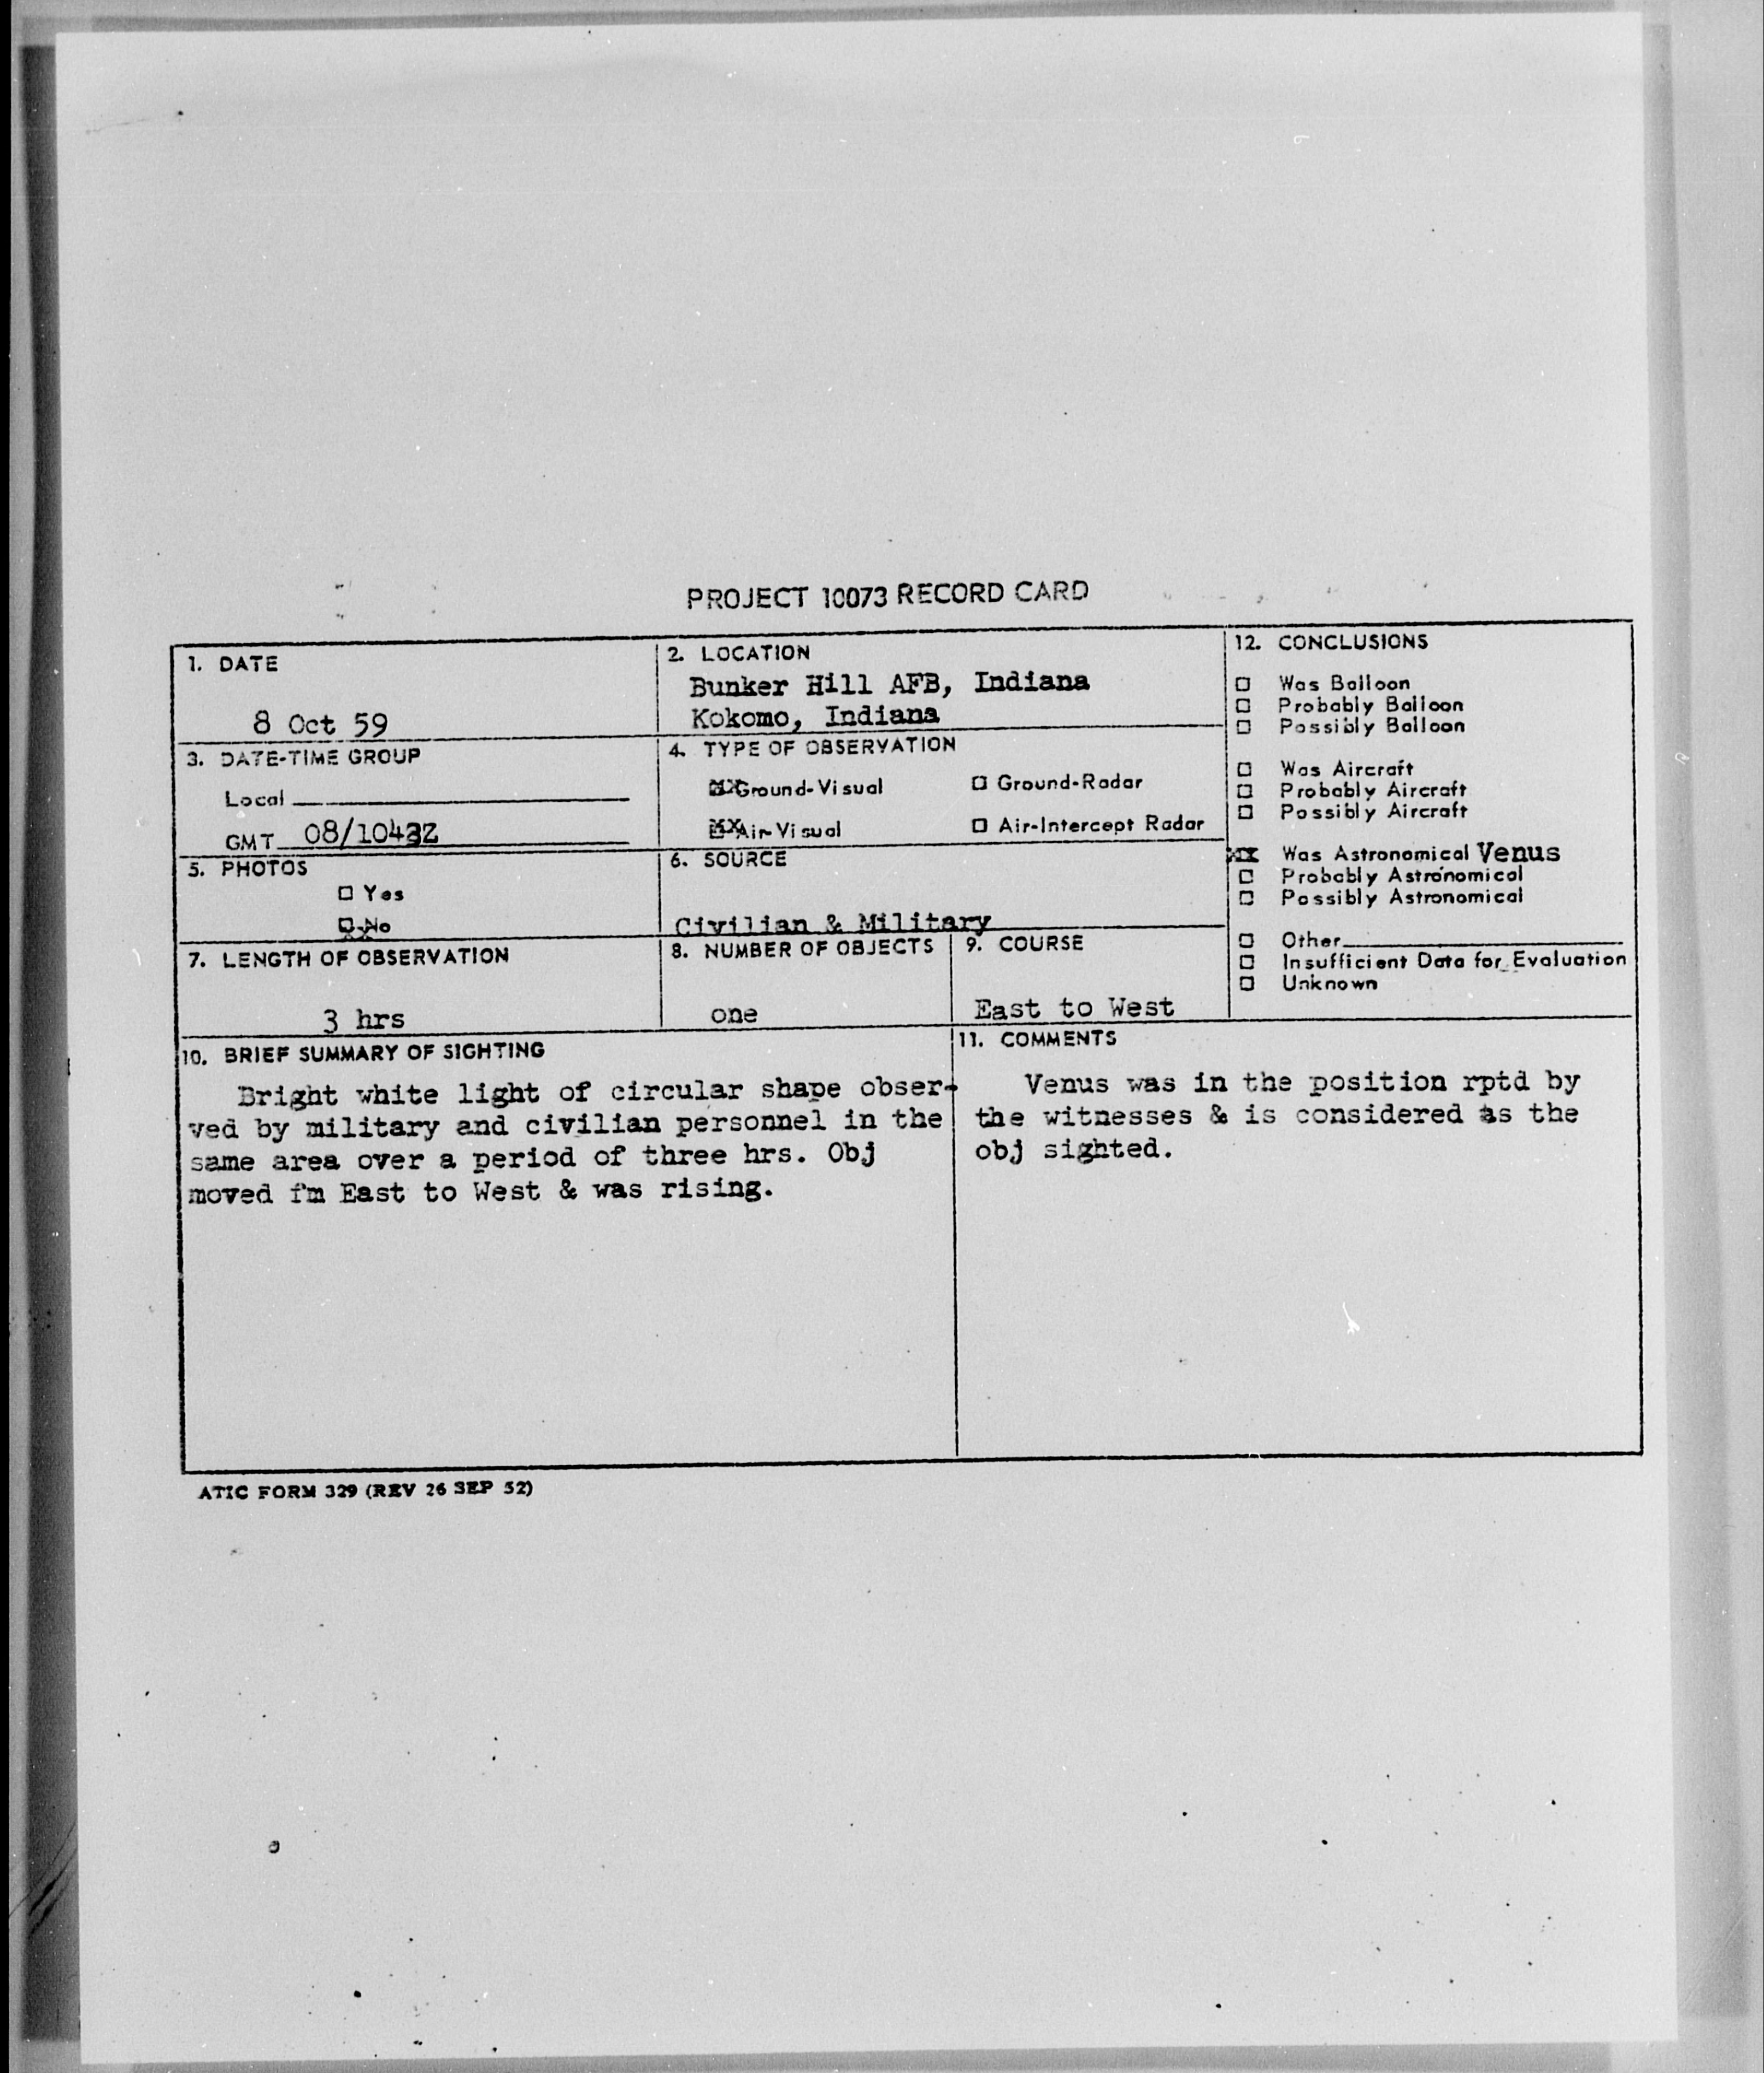 PROJECT 10073 RECORD CARD
1. DATE
8 Oct 59
2. LOCATION
Bunker Hill AFB, Indiana
Kokomo, Indiana
3. DATE-TIME GROUP
Local
GMT
4. TYPE OF OBSERVATION
Ground-Visual
Ground-Radar
Air-Visual
Air-Intercept Radar
5. PHOTOS
Yes
No
6. SOURCE
Civilian & Military
7. LENGTH OF OBSERVATION
3 hrs
8. NUMBER OF OBJECTS
one
9. COURSE
East to West
10. BRIEF SUMMARY OF SIGHTING
Bright white light of circular shape obser-
ved by military and civilian personnel in the
same area over a period of three hrs. Obj
moved fm East to West & was rising.
11. COMMENTS
Venus was in the position rptd by
the witnesses & is considered as the
obj sighted.
12. CONCLUSIONS
Was Balloon
Probably Balloon
Possibly Balloon
Was Aircraft
Probably Aircraft
Possibly Aircraft
Was Astronomical Venus
Probably Astronomical
Possibly Astronomical
Other
Insufficient Data for Evaluation
Unknown
ATIC FORM 329 (REV 26 SEP 52)